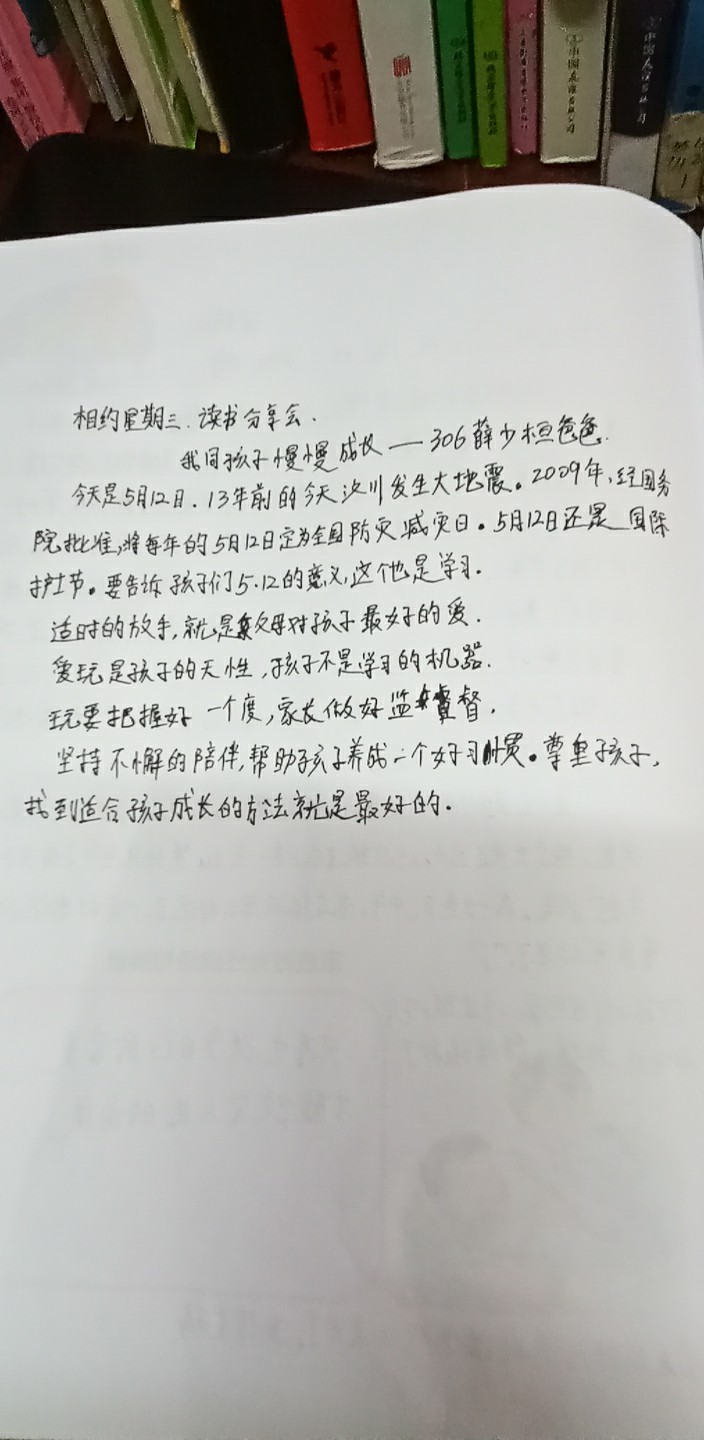 中国友谊出版公司
中国友谊出版公司
相约星期三.读书分享会.
我同孩子慢慢成长——306薛少桓爸爸.
今天是5月12日.13年前的今天汶川发生大地震。2009年,经国务
院批准,将每年的5月12日定为全国防灾减灾日。5月12日还是国际
护士节。要告诉孩子们5.12的意义,这个也是学习.
适时的放手,就是父母对孩子最好的爱.
爱玩是孩子的天性,孩子不是学习的机器.
玩要把握好一个度,家长做好监督.
坚持不懈的陪伴,帮助孩子养成一个好习惯。尊重孩子,
找到适合孩子成长的方法就是最好的.